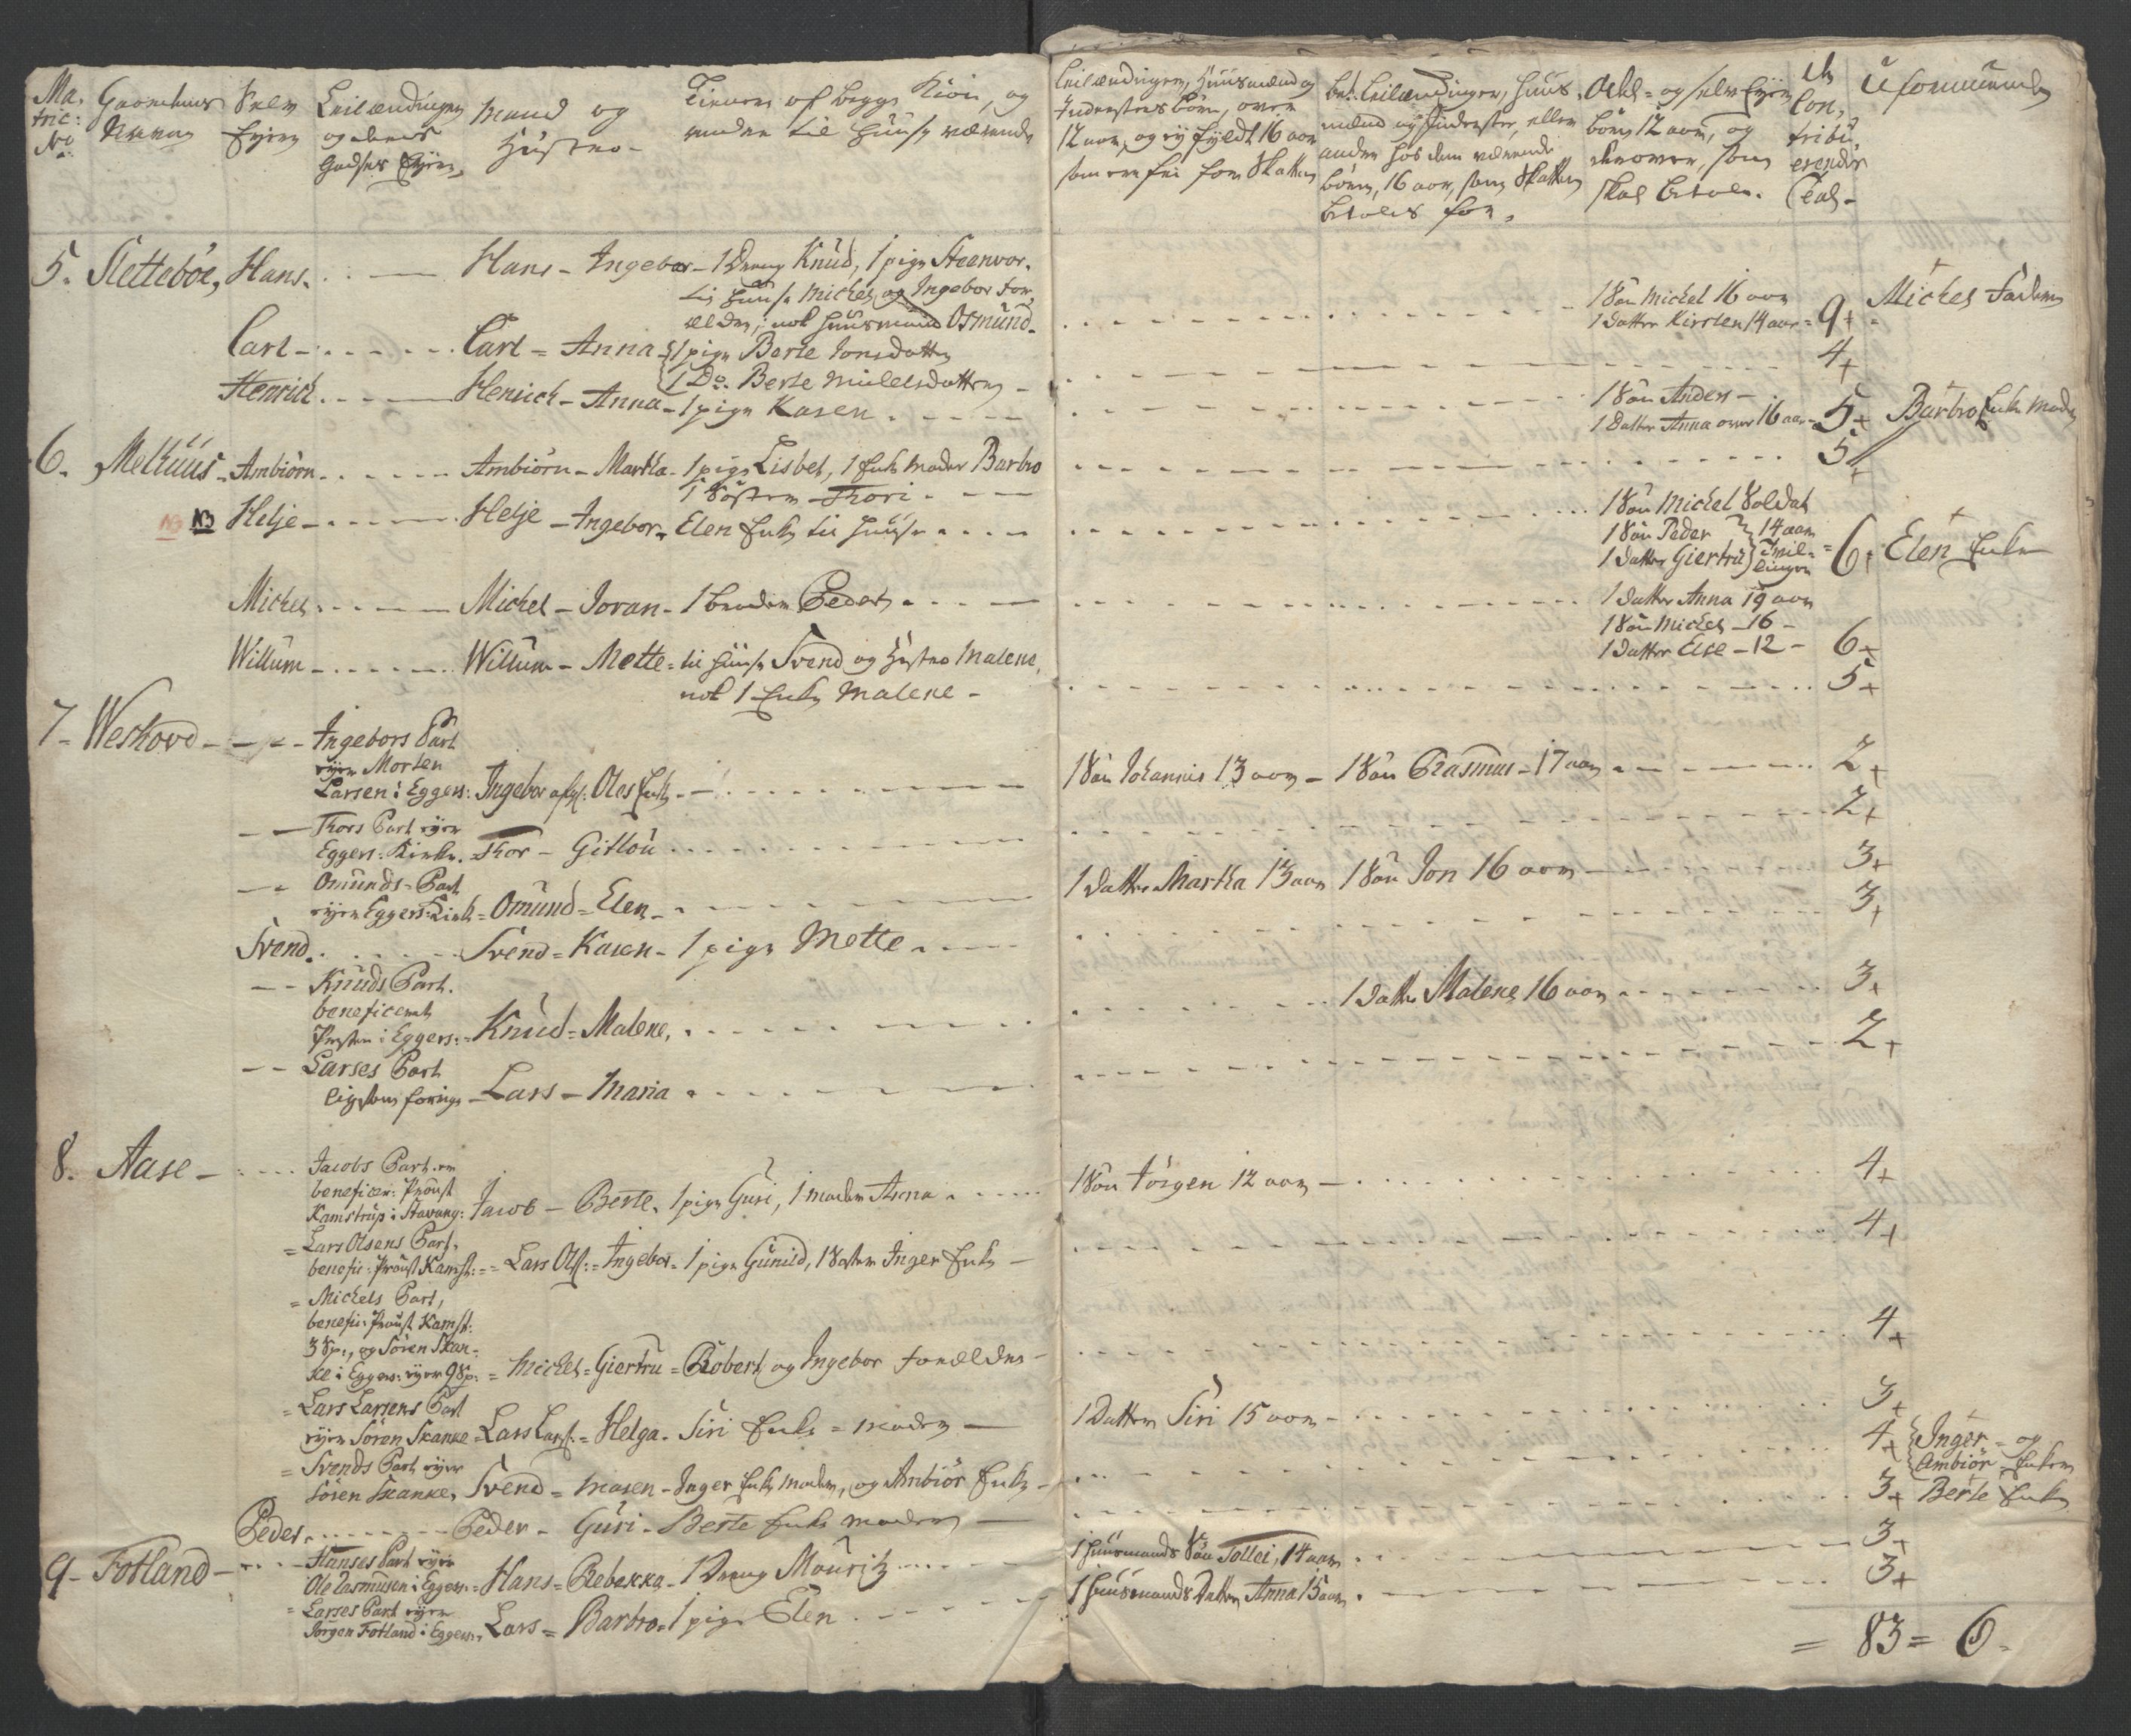 Ma- Gaardenes Selv Leilændingen Mand og Tienere af begge Kiøn, og
tric: Navne Eyere og deres Hustro - andre til Huuse værende
No Godses Eyere,
Leilændingers, Huusmænd og
Inderstes børn, over
12 aar, og ey fyldt 16 aar
som ere frie for Skatten
bem: Leilændinger, Huus-
mænd og Inderster, eller
andre hos dem værende
børn, 16 aar, som Skatten
betales for.
Odels- og selv Eyere
børn 12 aar, og
derover, som
skal betale.
De
Con-
tribu-
erendes
Tal-
Uformuende
5. Slettebøe, Hans. - Hans - Ingebor - 1 Dreng Knud, 1 pige Steenvor.
til Huuse Michel og Ingebor For-
ældre, nok Huusmand Osmund.
1 Søn Michel 16 aar
1 Datter Kirsten 14 aar = 9+ Michel Faderen
Carl - Carl = Anna - 1 pige Berte Jonsdatter 4+
1 Do. Berte Michelsdatter -
Henrich - Henrich - Anna - 1 pige Karen.
1 Søn Anders -
1 Datter Anna over 16 aar - 5+ Barbro Enke Moder
6. Melhuus - Ambiørn - Ambiørn - Martha - 1 pige Lisbet, 1 Enke Moder Barbro 5+
1 Søster Thori.
NB NB Helje - Helje - Ingebor - Elen Enke til Huuse
1 Søn Michel Soldat
1 Søn Peder 14 aar
1 Datter Giertru Tvil-
lingen = 6+ Elen Enke
Michel - Michel - Joran - 1 broder Peder.
1 Datter Anna 19 aar
1 Søn Michel - 16 -
1 Datter Else - 12 - 6+
Willum - Willum - Mette - til Huuse Svend og Hustro Malene,
nok 1 Enke Malene - 5+
7 - Weshovd - Ingebors Part
eyer Morten
Larsen i Eggers: Ingebor afgl: Oles Enke - 1 Søn Johannis 13 aar - 1 Søn Rasmus - 17 aar 2+
Thors Part eyer
Eggers: Kirke. - Thor - Gitlou 2+
Omunds - Part
eyer Eggers: Kirke = Omund = Elen - 1 Datter Martha 13 aar 1 Søn Jon 16 aar 3+
Svend. Svend = Karen - 1 pige Mette. 3+
Knuds Part.
beneficeret
Præsten i Eggers: - Knud = Malene. 1 Datter Malene 16 aar 3+
Larses Part
ligesom forrige - Lars - Maria 2+
8. Aase - Jacobs Part er
beneficer: Proust
Kamstrup i Stavang: Jacob - Berte. 1 pige Guri, 1 Moder Anna 1 Søn Jörgen 12 aar 4+
= Lars Olsens Part,
benefic: Proust Kamst: = Lars Ols: = Ingebor = 1 pige Gunild, 1 Søster Inger Enke - 4+
= Michels Part,
benefic: Proust Kamst:
3 Sp:, og Sören Skan-
ke i Eggers: eyer 9 Sp: = Michel = Giertru = Robert og Ingebor Forældre - 4+
= Lars Larsens Part
eyer Sören Skanke = Lars Lars: = Helga. Siri Enke = Moder 1 Datter Siri 15 aar 3+
= Svends Part eyer
Sören Skanke, Svend = Maren - Inger Enke Moder, og Ambiör Enke - 4+ Inger - og
Ambiör - Enker
Peder. Peder - Guri - Berte Enke Moder 3+ Berte Enke
9 - Fotland - Hanses Part eyer
Ole Rasmusen i Eggers: = Hans = Rebekka - 1 Dreng Mouritz 1 Huusmands Søn Tollei, 14 aar 3+
= Larses Part eyer
Jörgen Fotland i Eggers: Lars = Barbro = 1 pige Elen 1 Huusmands Datter Anna 15 aar 3+
= 83 = 6 -